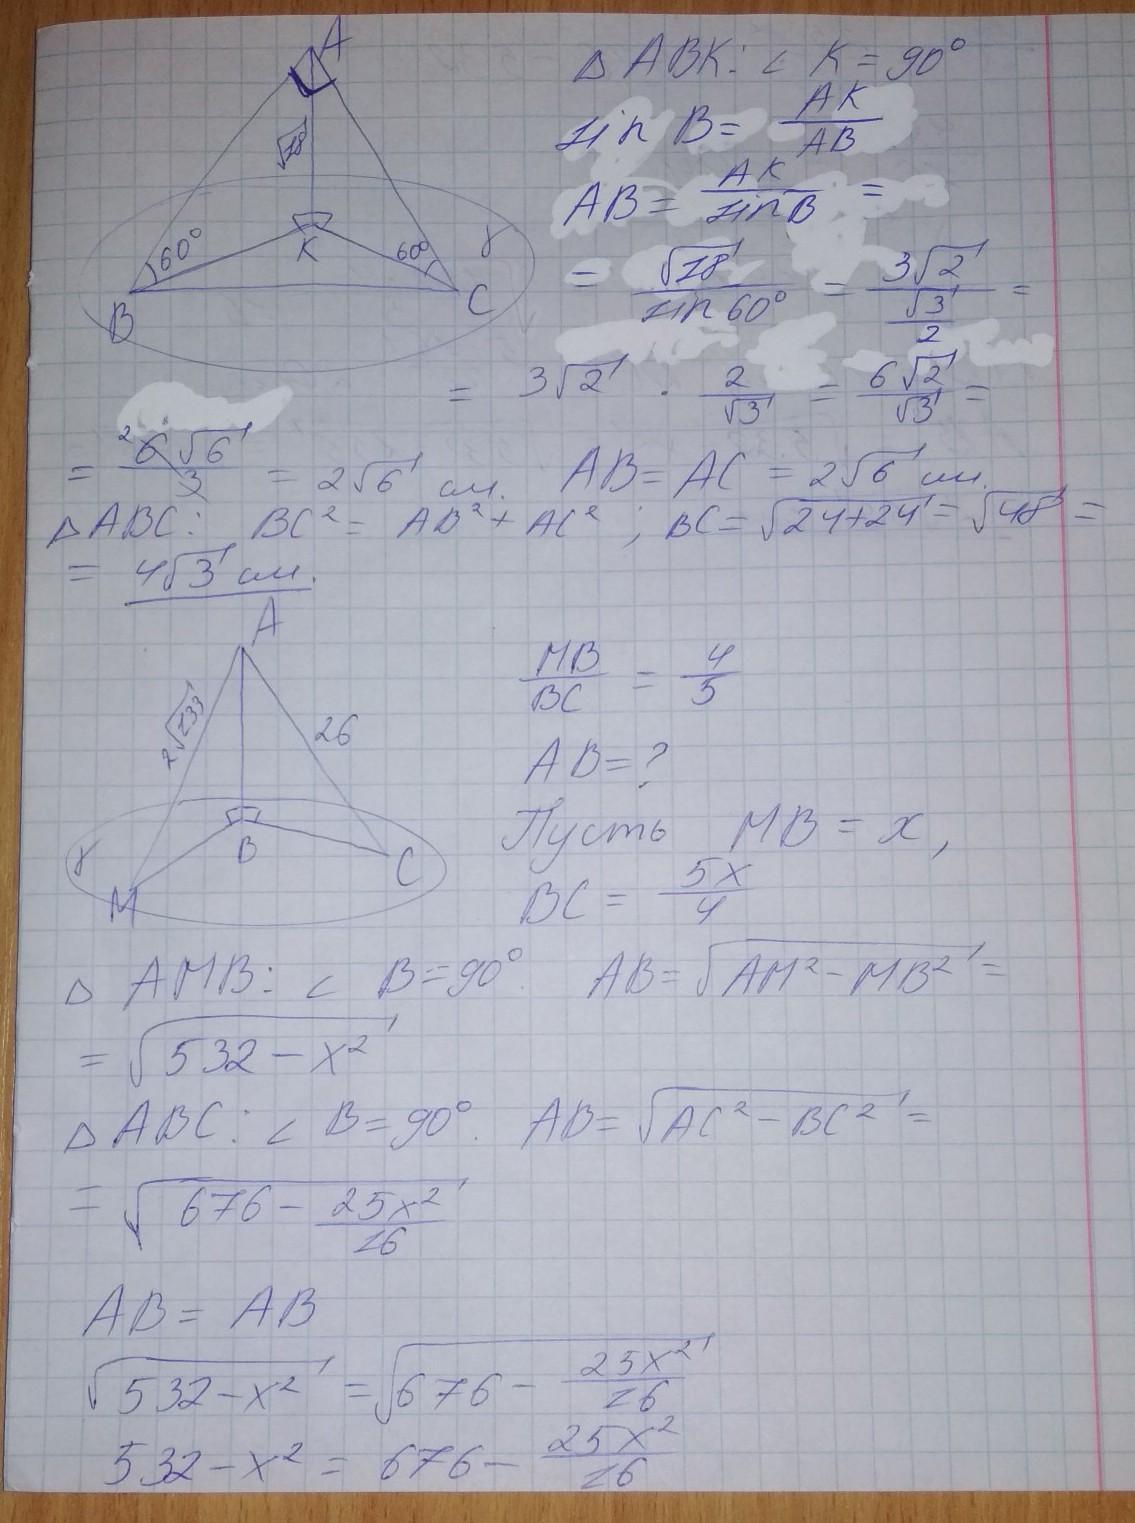 A
√18
60°
60°
K
B
C
γ
△ ABK: ∠ K = 90°
sin B = AK/AB
AB = AK/sin B =
= √18/sin 60° = 3√2/(√3/2) =
= 3√2 · 2/√3 = 6√2/√3 =
= 6√6/3 = 2√6 см. AB = AC = 2√6 см.
△ABC: BC² = AB² + AC² ; BC = √24+24 = √48 =
= 4√3 см.
A
2√133
26
B
γ
M
C
MB/BC = 4/5
AB = ?
Пусть MB = x,
BC = 5x/4
△ AMB: ∠ B = 90°. AB = √AM² - MB² =
= √532 - x²
△ ABC: ∠ B = 90°. AB = √AC² - BC² =
= √676 - 25x²/16
AB = AB
√532 - x² = √676 - 25x²/16
532 - x² = 676 - 25x²/16